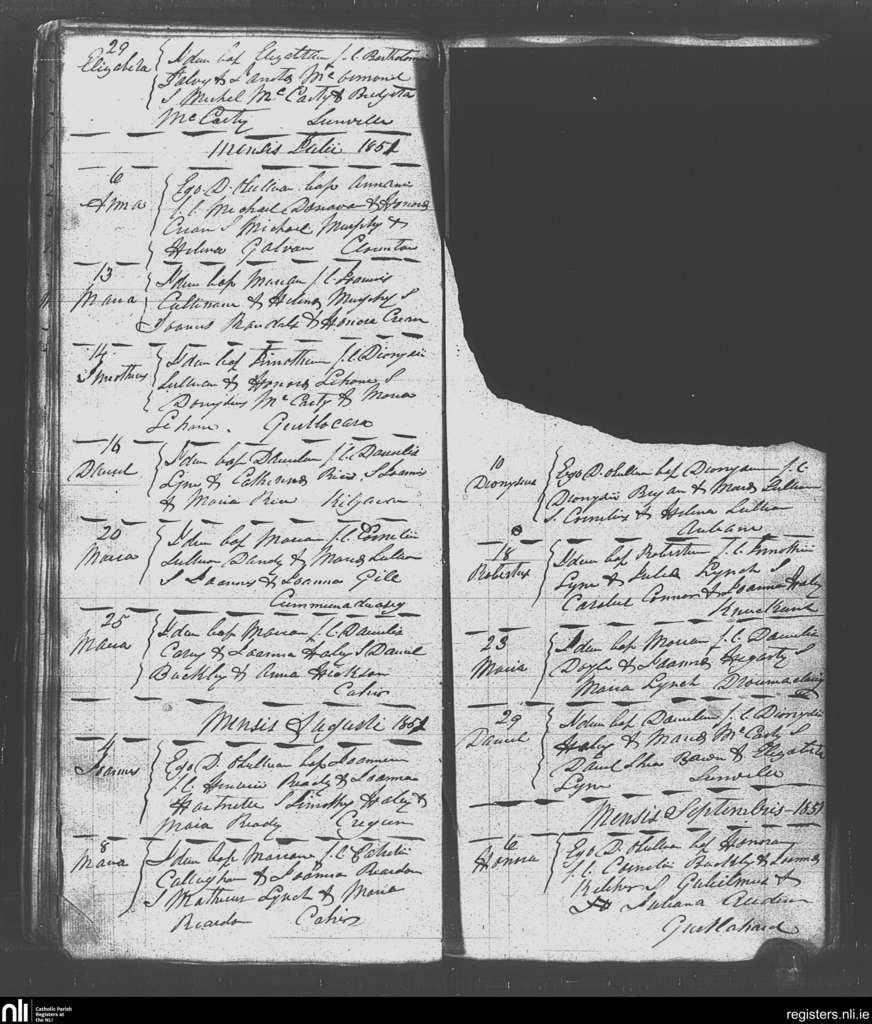 29
Elizabeta
Idem bap Elizabetham f. l. Bartholomei
Falvey &
S Michel McCarty & Bridgitta
McCarty Lunville
Mensis Julii 1851
6
Anna
Ego D. OSullivan bap Annam
f. l. Michael Donovan & Honora
Crean S Michael Murphy &
Helena Galvan Clountou
13
Maria
Idem bap Mariam f. l. Joannis
Cullinane & Helena Murphy S
Joannes Randals & Honora Crean
14
Timotheus
Idem bap Timotheum f. l. Dionysii
Sullivan & Honora Lehane S
Dionysius McCarty & Maria
Lehane. Gurtlocara
16
Daniel
Idem bap Danielem f. l. Danielis
Lyne & Catherina Rice S Joannis
& Maria Rice Kilgarvan
20
Maria
Idem bap Mariam f. l. Cornelii
Sullivan Dandy & Maria Sullivan
S Joannes & Joanna Gill
25
Maria
Idem bap Mariam f. l. Danielis
Casey & Joanna Haley S Daniel
Buckley & Anna Hickson
Cahir
Mensis Augusti 1851
4
Joannes
Ego D. OSullivan bap Joannem
f. l. Ready & Joanna
Hartnette S Timothy Haley &
Maria Ready Cregeen
8
Maria
Idem bap Mariam f. l. Cahelii
Callaghan & Joanna Reardon
S Matheus Lynch & Maria
Reardon Cahir
10
Dionysius
Ego D. OSullivan bap Dionysium f. l.
Dionysii Bryan & Maria Sullivan
S. Cornelius & Helena Sullivan
18
Robertus
Idem bap Robertum f. l. Timothii
Lyne & Julia Lynch S
Connor & Joanna Haley
23
Maria
Idem bap Mariam f. l. Danielis
Doyle & Joanna Hegarty S
Maria Lynch
29
Daniel
Idem bap Danielem f. l. Dionysii
Haley & Maria McCarty S
Daniel Shea Bawn & Elizabeta
Lyne Lunville
Mensis Septembris 1851
6
Honora
Ego D. OSullivan bap Honoram
f. l. Cornelii Buckley & Joanna
S Gulielmus &
Juliana
nli
Catholic Parish
Registers at
the NLI
registers.nli.ie